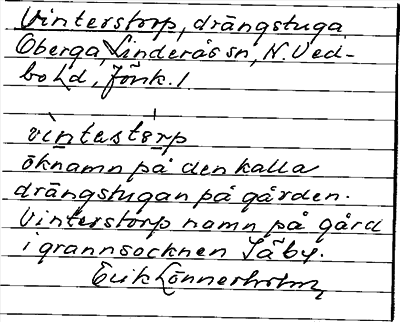 Vinterstorp, drängstuga
Oberga, Linderås sn, N. Ved-
bo hd, Jönk. l
vìntəstórp
öknamn på den kalla
drängstugan på gården.
Vinterstorp namn på gård
i grannsocknen Säby.
Erik Lönnerholm